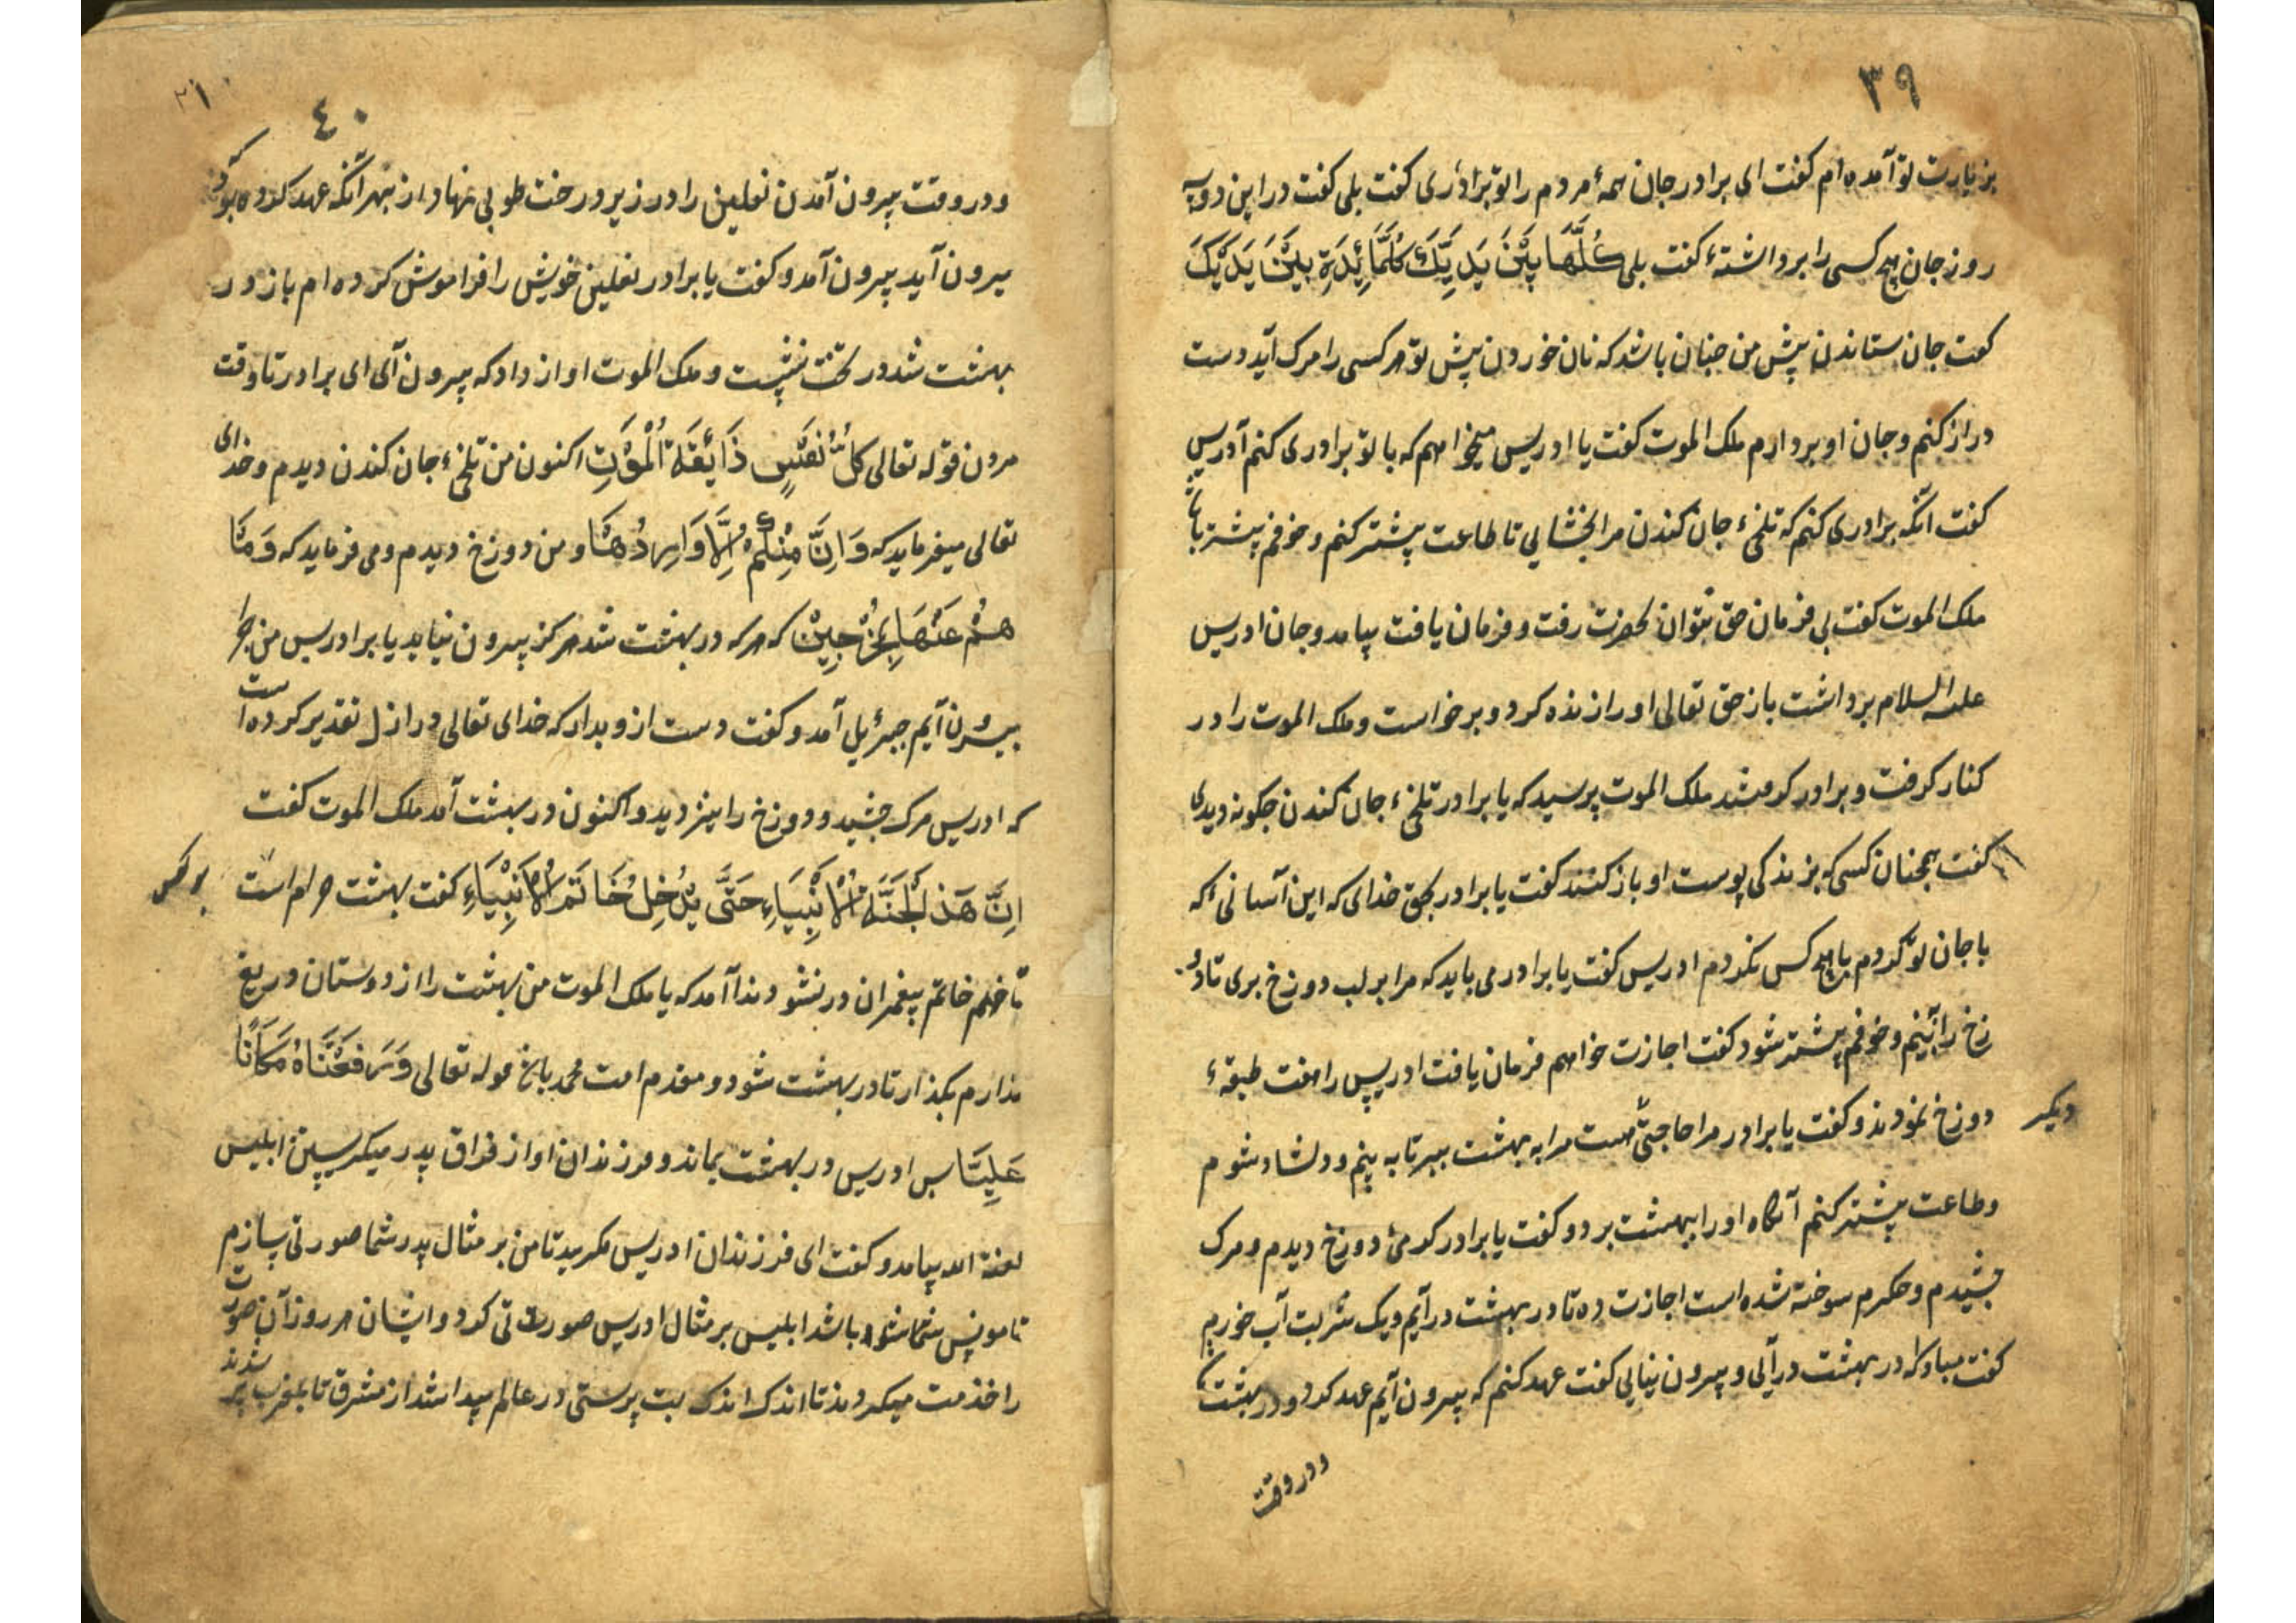 ٣٩
بزیارت تو آمده ام کفت ای برادر جان همهٔ مردم را تو برداری کفت بلی کفت در این دو سه
روز جان هیچ کسی را برداشتهٔ کفت بلی کُلُّهَا بَیْنَ یَدَیَّكَ کَمَائِدَةِ بَیْنَ یَدَیْكَ
کفت جان ستاندن پیش من چنان باشد که نان خوردن پیش تو هر کسی را مرک آید دست
دراز کنم و جان او بردارم ملک الموت کفت یا ادریس میخواهم که با تو برادری کنم آدریس
کفت آنکه برادری کنم که تلخیٔ جان کندن مرا بخشایی تا طاعت پیشتر کنم و خوفم پیشتر باشد
ملک الموت کفت بی فرمان حق نتوان بحضرت رفت و فرمان یافت بیامد و جان ادریس
علیه السلام برداشت باز حق تعالی او را زنده کرد و برخواست و ملک الموت را در
کنار کرفت و برادر کر فتند ملک الموت پرسید که یا برادر تلخیٔ جان کندن چکونه دیدی
کفت همچنان کسی که بزندکی پوست او باز کنند کفت یا برادر بحق خدای که این آسانی که
با جان تو کردم با هیچ کس نکردم ادریس کفت یا برادر می باید که مرا بر لب دوزخ بری تا دو
زخ را بینم و خوفم پیشتر شود کفت اجازت خواهم فرمان یافت ادریس را هفت طبقهٔ
دوزخ نمودند و کفت یا برادر مرا حاجتی هست مرا به بهشت ببر تا به بینم و دلشاد شوم
دیکر
و طاعت پیشتر کنم آنکاه او را ببهشت برد و کفت یا برادر کرمیٔ دوزخ دیدم و مرک
چشیدم و جکرم سوخته شده است اجازت ده تا در بهشت درآیم و یک شربت آب خوریم
کفت مبادکه در بهشت درآئی و بیرون نیایی کفت عهد کنم که بیرون آیم عهد کرد و در بهشت
ودر وقت
٤٠
ودر وقت بیرون آمدن نعلین را در زیر درخت طوبی نهاد از بهر آنکه عهد کرده بود که
بیرون آید بیرون آمد و کفت یا برادر نعلین خویش را فراموش کرده ام باز در
بهشت شد در تخت نشست و ملک الموت اواز داد که بیرون آی ای برادر تا وقت
مردن قوله تعالی کُلُّ نَفْسٍ ذَائِقَةُ الْمَوْتِ اکنون من تلخیٔ جان کندن دیدم و خدای
تعالی میفرماید که وَاِنَّ مِنْکُمْ اِلَّا وَارِدُهَا و من دوزخ دیدم و می فرماید که وَمَا
هُمْ عَنْهَا بِمُخْرَجِیْنَ که هر که در بهشت شد هرکز بیرون نیاید یا برادر پس من چرا
بیرون آیم جبرئیل آمد و کفت دست از و بدار که خدای تعالی در ازل تقدیر کرده است
که ادریس مرک چشید و دوزخ را نیز دید و اکنون در بهشت آمد ملک الموت کفت
اِنَّ هَذَ الْجَنَّةَ الْاَنْبِیَاءِ حَتَّی یَدْخِلُ خَاتَمُ الْاَنْبِیَاءِ کفت بهشت حرام است
تا خاتم پیغمبران در نشود ندا آمد که یا ملک الموت من بهشت را از دوستان دریغ
ندارم بکذار تا در بهشت شود و مقدم امت محمد باش قوله تعالی وَرَفَعْنَاهُ مَکَانًا
عَلِیًّا پس ادریس در بهشت بماند و فرزندان او از فراق پدر میکریستند ابلیس
لعنة الله بیامد و کفت ای فرزندان ادریس مکریید تا من بر مثال پدر شما صورتی بسازم
تا مونس شما شود باشد ابلیس بر مثال ادریس صورتی کرد و ایشان هر روز آن صورت
را خدمت میکردند تا اندک اندک بت پرستی در عالم پیدا شد از مشرق تا بمغرب